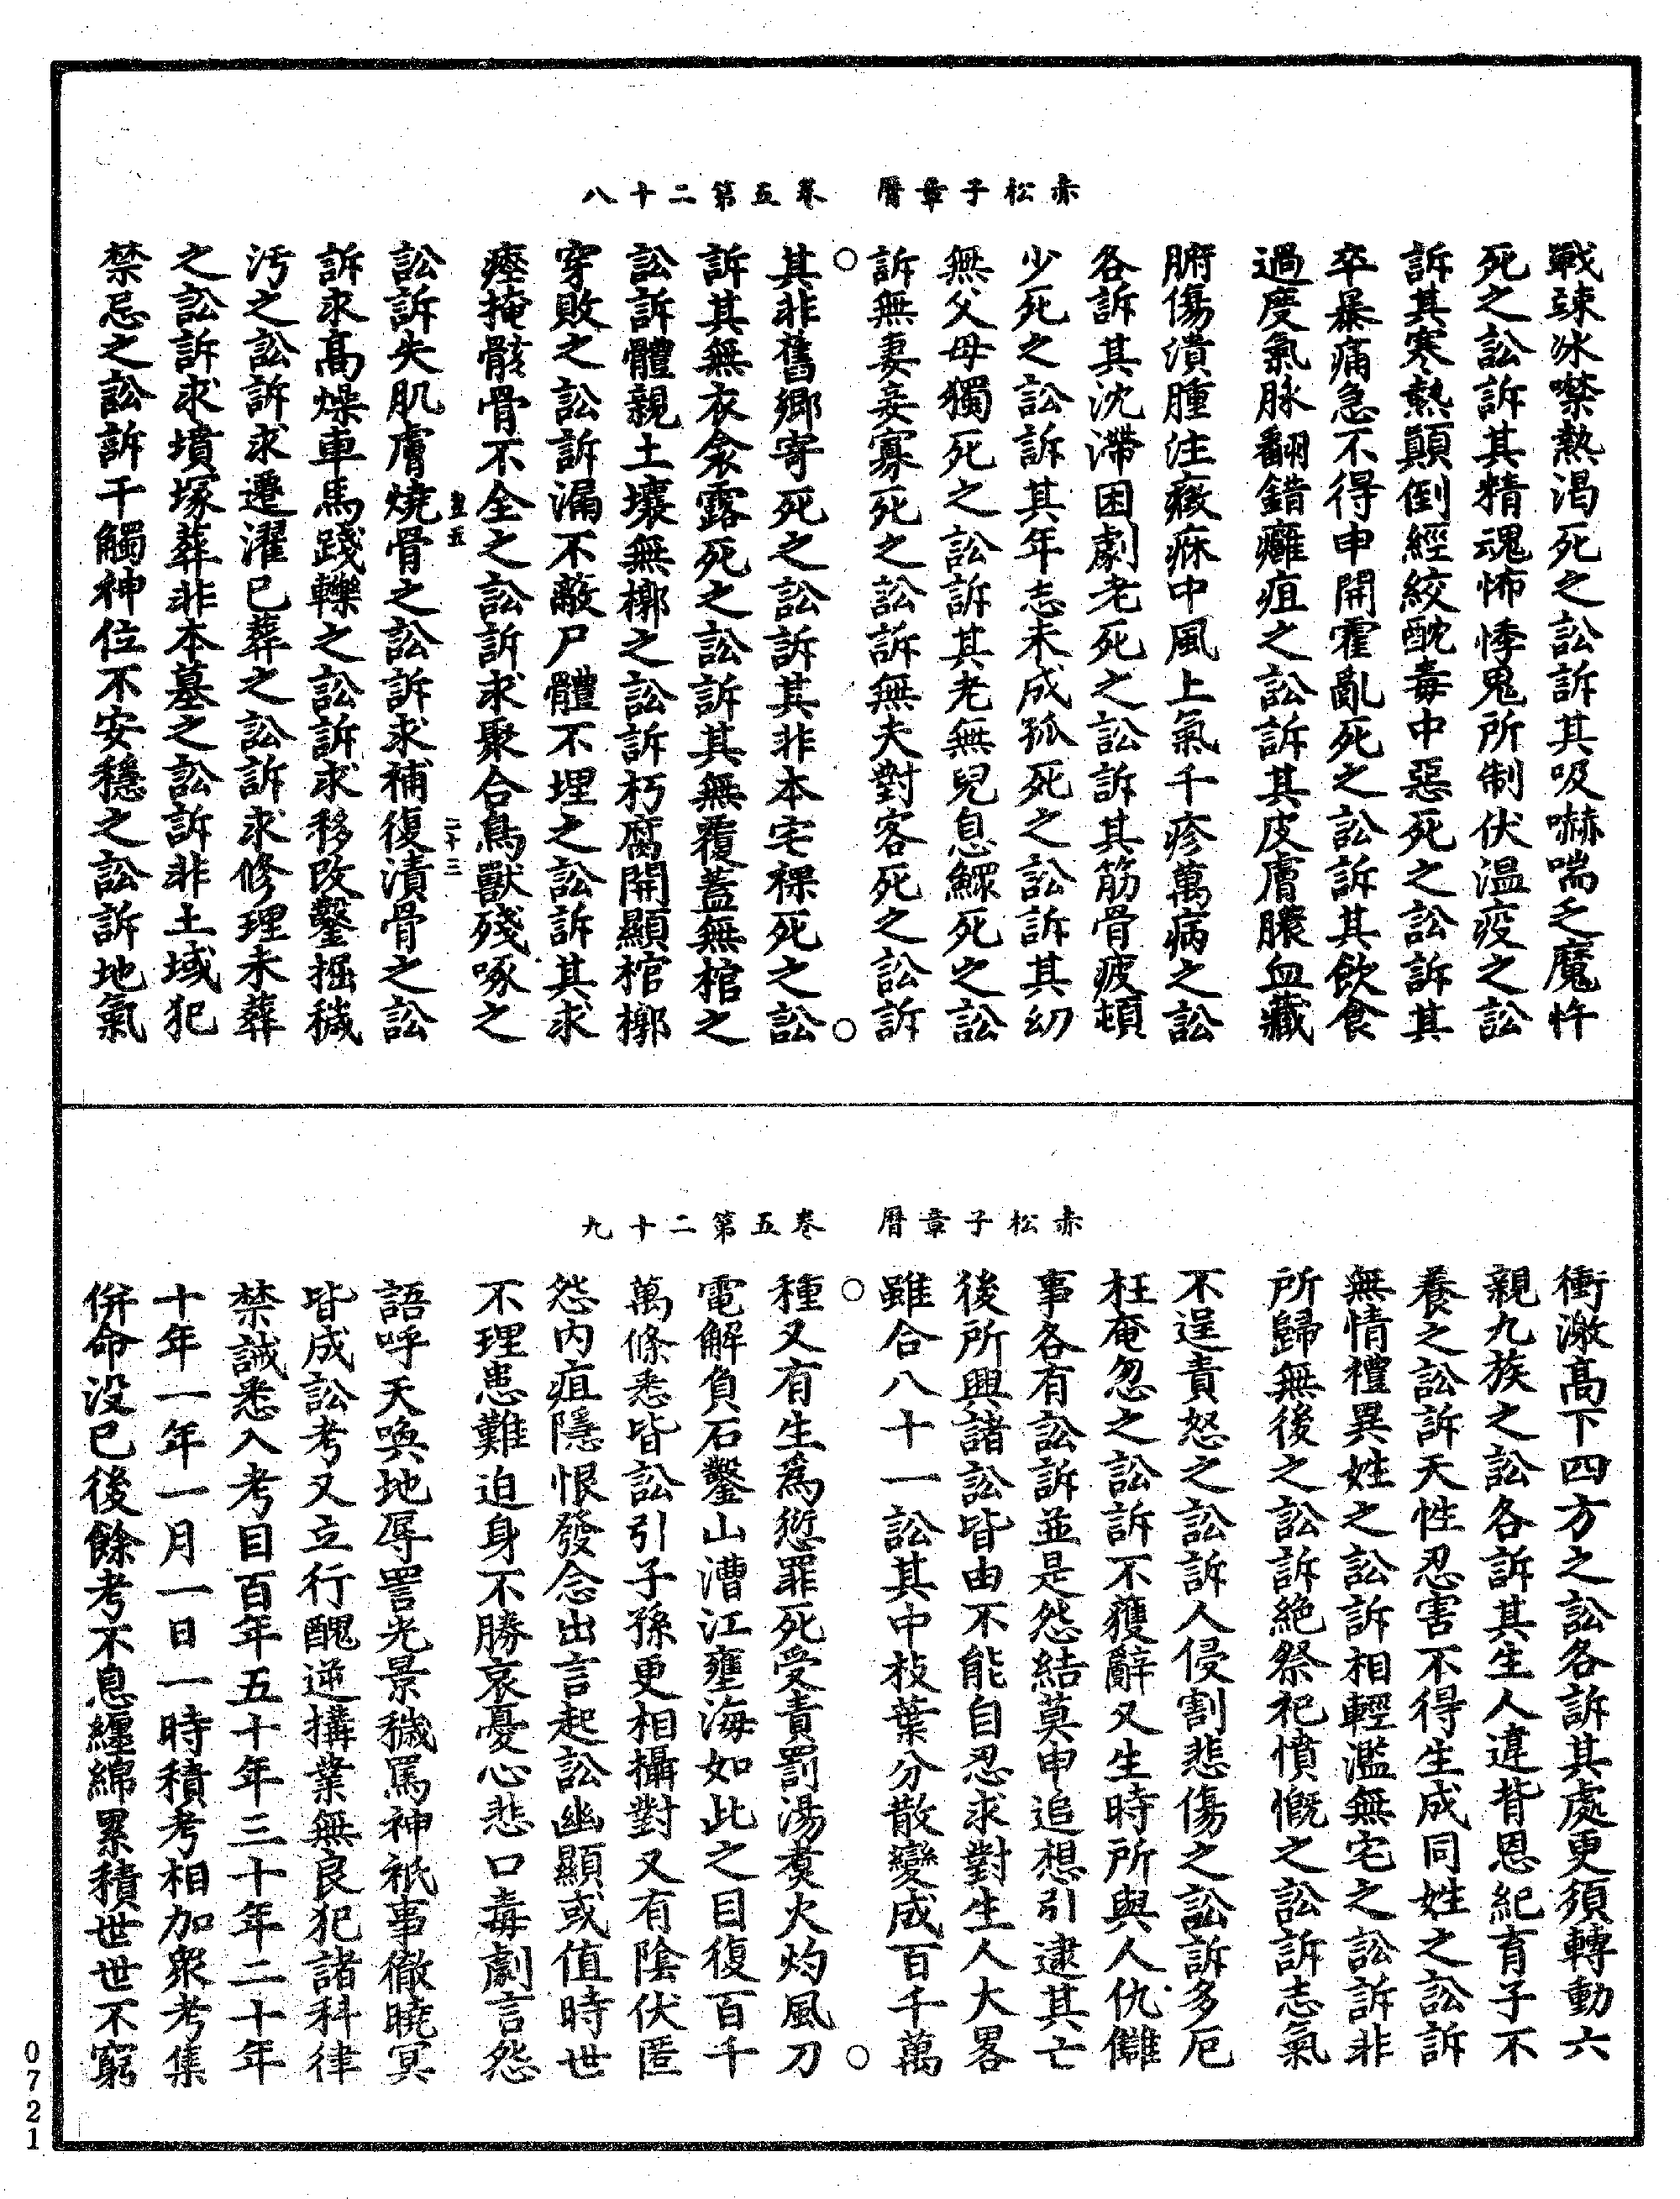 赤松子章曆　卷五第二十八
戰竦冰噤熱渴死之訟訴其吸嚇喘乏魔忤
死之訟訴其精魂怖悸鬼所制伏温疫之訟
訴其寒熱顛倒經絞酖毒中惡死之訟訴其
卒暴痛急不得申開霍亂死之訟訴其飲食
過度氣脉翻錯癰疽之訟訴其皮膚膿血藏
腑傷潰腫注癥痳中風上氣千疹萬病之訟
各訴其沈滯困劇老死之訟訴其筋骨疲頓
少死之訟訴其年志未成孤死之訟訴其幼
無父母獨死之訟訴其老無兒息鰥死之訟
訴無妻妾寡死之訟訴無夫對客死之訟訴
其非舊鄉寄死之訟訴其非本宅裸死之訟
訴其無衣衾露死之訟訴其無覆蓋無棺之
訟訴體親土壤無槨之訟訴朽腐開顯棺槨
穿敗之訟訴漏不敵尸體不埋之訟訴其求
瘞掩骸骨不全之訟訴求聚合鳥獸殘啄之
訟訴失肌膚燒骨之訟訴求補復漬骨之訟
訴求高燥車馬踐轢之訟訴求移改鑿掘穢
汚之訟訴求遷濯已葬之訟訴求修理未葬
之訟訴求墳塚葬非本墓之訟訴非土域犯
禁忌之訟訴干觸神位不安穩之訟訴地氣
豈五　二十三
赤松子章曆　卷五第二十九
衝激高下四方之訟各訴其處更須轉動六
親九族之訟各訴其生人違背恩紀育子不
養之訟訴天性忍害不得生成同姓之訟訴
無情禮異姓之訟訴相輕濫無宅之訟訴非
所歸無後之訟訴絶祭祀憤慨之訟訴志氣
不逞責怒之訟訴人侵割悲傷之訟訴多厄
枉奄忽之訟訴不獲辭又生時所與人仇讎
事各有訟訴並是怨結莫申追想引逮其亡
後所興諸訟皆由不能自忍求對生人大畧
雖合八十一訟其中枝葉分散變成百千萬
種又有生爲愆罪死受責罰湯煑火灼風刀
電解負石鑿山漕江壅海如此之目復百千
萬條悉皆訟引子孫更相攝對又有陰伏匿
怨内疽隱恨發念出言起訟幽顯或值時世
不理患難迫身不勝哀憂心悲口毒劇言怨
語呼天喚地辱詈光景穢罵神祇事徹曉冥
皆成訟考又立行醜逆搆業無良犯諸科律
禁誡悉入考目百年五十年三十年二十年
十年一年一月一日一時積考相加衆考集
併命没已後餘考不息纏綿累積世世不窮
0721